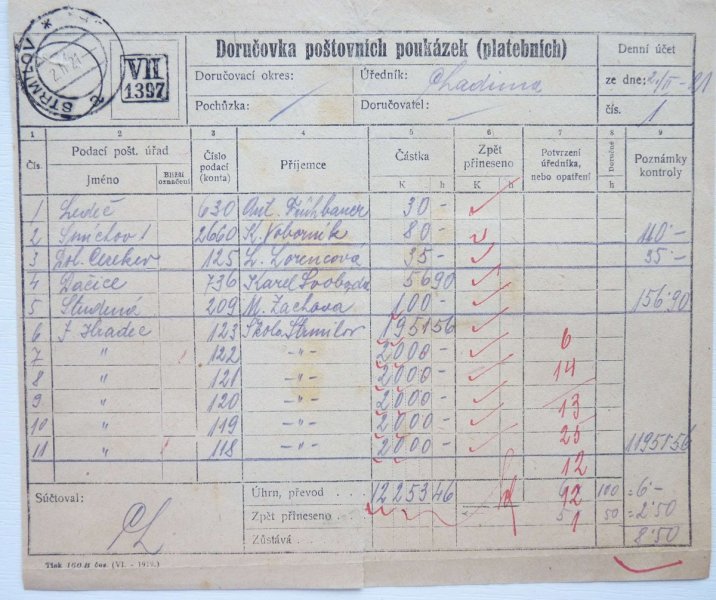 STRMILOV
VII
1397
Doručovka poštovních poukázek (platebních)
Denní účet
Doručovací okres:
Úředník: Chadima
ze dne: 2/II - 21
Pochůzka:
Doručovatel:
čís. 1
1 2 3 4 5 6 7 8 9
Čís. Podací pošt. úřad Číslo podací (konta) Příjemce Částka Zpět přineseno Potvrzení úředníka, nebo opatření Doručné Poznámky kontroly
Jméno Bližší označení K h K h h
1 Ledeč 630 Ant. Frühbauer 30 -
2 Smíchov 1 2660 K. Voborník 80 - 110 -
3 Hor. Cerekev 125 L. Lorencová 35 - 35 -
4 Dačice 736 Karel Svoboda 56 90
5 Studená 209 M. Zachova 100 - 156.90
6 J. Hradec 123 Škola Strmilov 1951 56
7 " 122 -"- 2000 - 6
8 " 121 -"- 2000 - 14
9 " 120 -"- 2000 - 13
10 " 119 -"- 2000 - 25
11 " 118 -"- 2000 - 11951 56
12
Súčtoval:
Úhrn, převod . . . 12253 46 92 100 = 6.-
Zpět přineseno . . . 51 50 = 2.50
Zůstává . . . 8.50
Tisk 160 B čes. (VI. - 1919.)